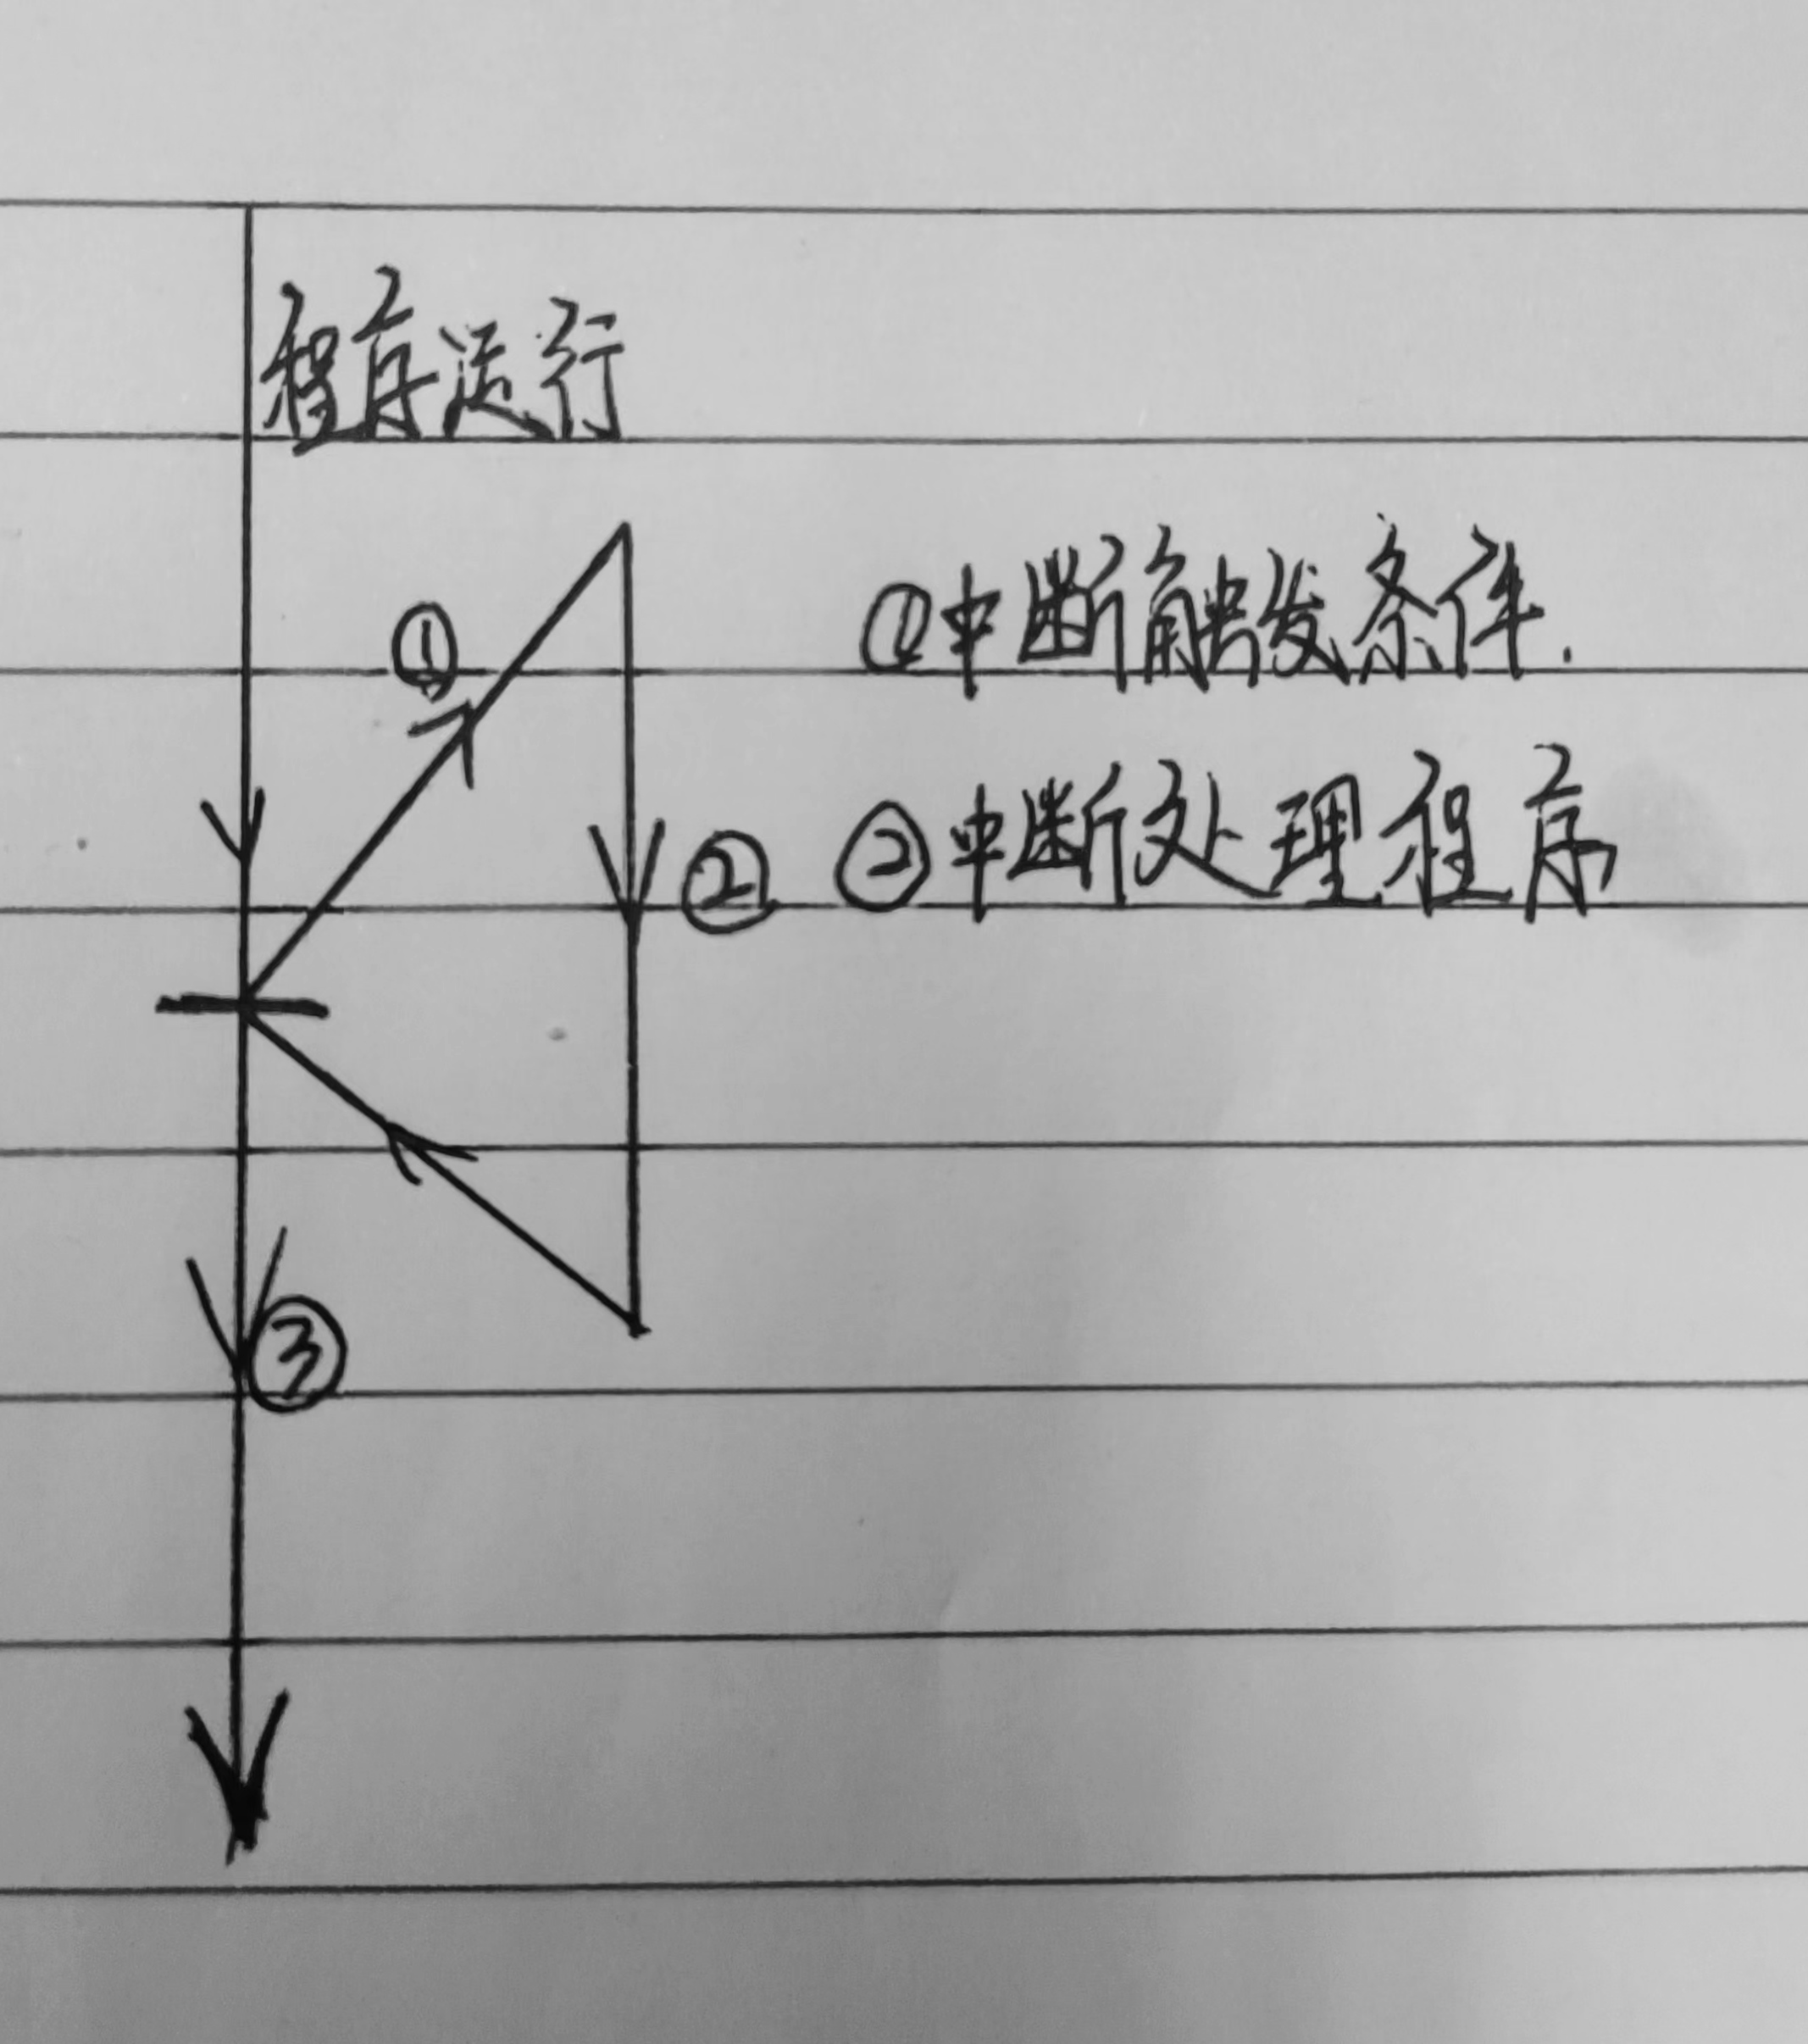 程序运行
①
①中断触发条件.
②
②中断处理程序
③